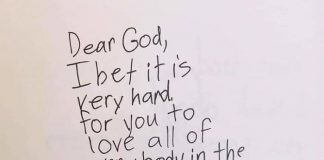 Dear God,
I bet it is
very hard
for you to
love all of
everybody in the